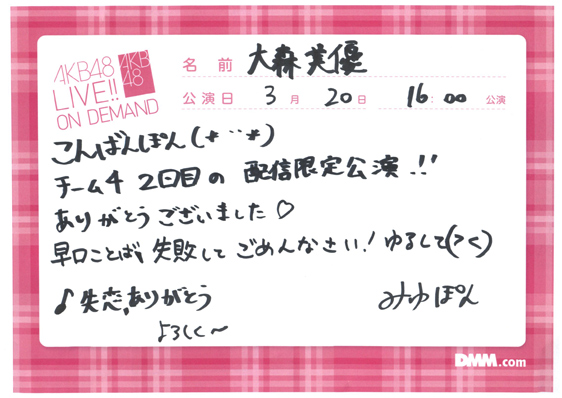 AKB48
LIVE!!
ON DEMAND
AKB
48
名前 大森美優
公演日 3月 20日 16:00 公演
こんばんぽん(*¨*)
チーム4 2回目の 配信限定公演!!
ありがとうございました♡
早口ことば、失敗して ごめんなさい! ゆるして(><)
♪失恋、ありがとう
よろしく〜
みゆぽん
DMM.com